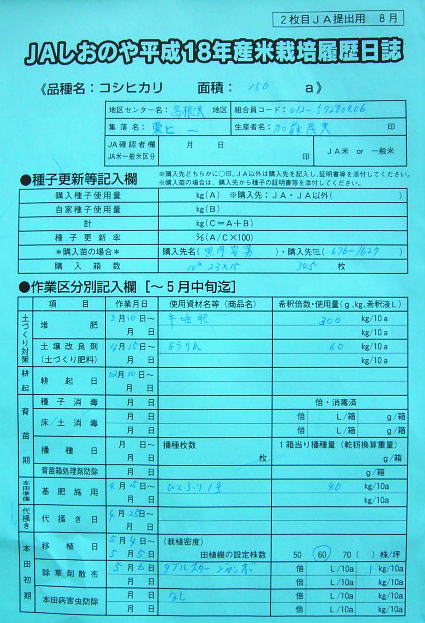 2枚目JA提出用 8月
JAしおのや平成18年産米栽培履歴日誌
《品種名：コシヒカリ 面積： 150 a》
地区センター名： 高根沢 地区 組合員コード：
集落名： 生産者名： 印
JA確認者欄 印 JA米 or 一般米
JA米一般米区分
●種子更新等記入欄 ※購入先どちらかに○印、JA以外は購入先を記入し、証明書等を添付してください。
※購入苗の場合は、購入先から種子の証明書等を添付してください。
購入種子使用量 kg(A) ※購入先：JA・JA以外( )
自家種子使用量 kg(B)
計 kg(C＝A＋B)
種子更新率 %(A/C×100)
＊購入苗の場合＊ 購入先名( )・購入先TEL( 676-1627 )
購入箱数 345 枚
●作業区分別記入欄 [～5月中旬迄]
項目 作業月日 使用資材名等（商品名） 希釈倍数・使用量(g、kg、希釈液L)
土づくり対策 堆肥 3月10日～ 牛堆肥 300 kg/10a
月 日 kg/10a
土壌改良剤 4月15日～ ようりん 60 kg/10a
(土づくり肥料) 月 日 kg/10a
耕起 耕起日 12月10日～
月 日
育苗期 種子消毒 月 日 倍・消毒済
床/土消毒 月 日 倍 L/箱 g/箱
月 日 倍 L/箱 g/箱
播種日 月 日～ 播種枚数 1箱当り播種量（乾籾換算重量）
月 日 枚 g/箱
育苗箱処理剤防除 月 日 g/箱
本田準備 基肥施用 4月25日～ ひとふり1号 40 kg/10a
月 日 kg/10a
代掻き 代掻き日 4月25日～
月 日
本田初期 移植日 5月4日～ (栽植密度)
5月5日 田植機の設定株数 50 60 70 ( )株/坪
除草剤散布 5月6日 ダブルスタージャンボ 倍 L/10a 1 kg/10a
月 日 倍 L/10a kg/10a
本田病害虫防除 月 日 なし 倍 L/10a kg/10a
月 日 倍 L/10a kg/10a